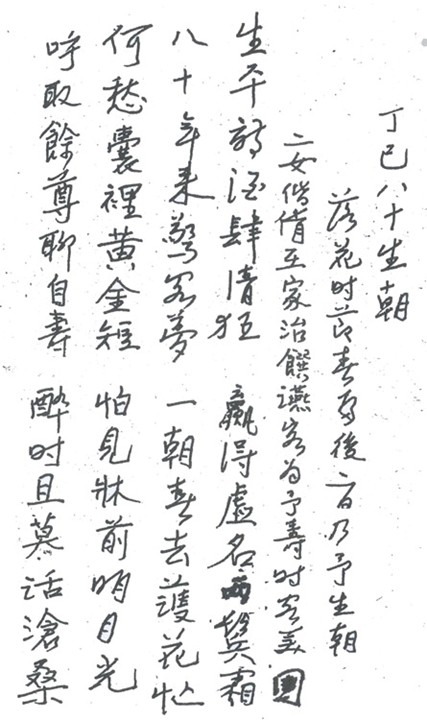 丁巳八十生朝
落花时节春後二日乃予生朝
二女偕倩至家治饌讌客为予壽时客美國
生平詩酒肆清狂 贏得虚名兩鬓霜
八十年来驚客夢 一朝春去護花忙
何愁囊裡黄金短 怕見牀前明月光
呼取餘尊聊自壽 醉时且慕话滄桑